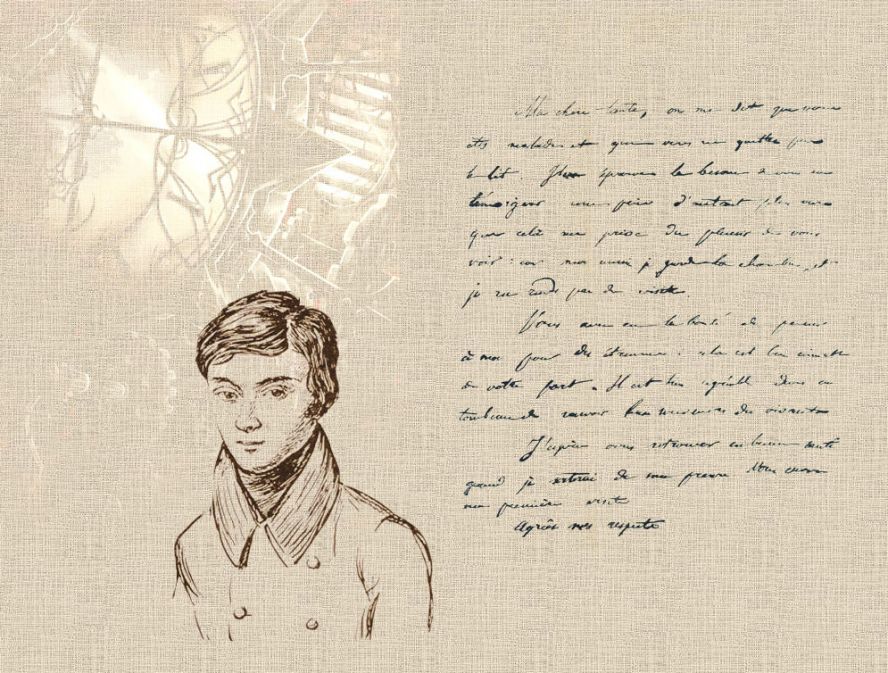 Ma chère tante, on me dit que vous
êtes malade et que vous ne quittez pas
le lit. J'
témoigner ma peine d'autant plus vive
que cela me prive du plaisir de vous
voir : car moi aussi je garde la chambre, et
je ne rends pas de visite.
Vous avez eu la bonté de penser
à moi pour des étrennes : cela est bien aimable
de votre part. Il est bien agréable dans un
tombeau de recevoir des vivants
J'espère vous retrouver en bonne santé
quand je sortirai de ma prison Vous aurez
ma première visite
Agréez mes respects